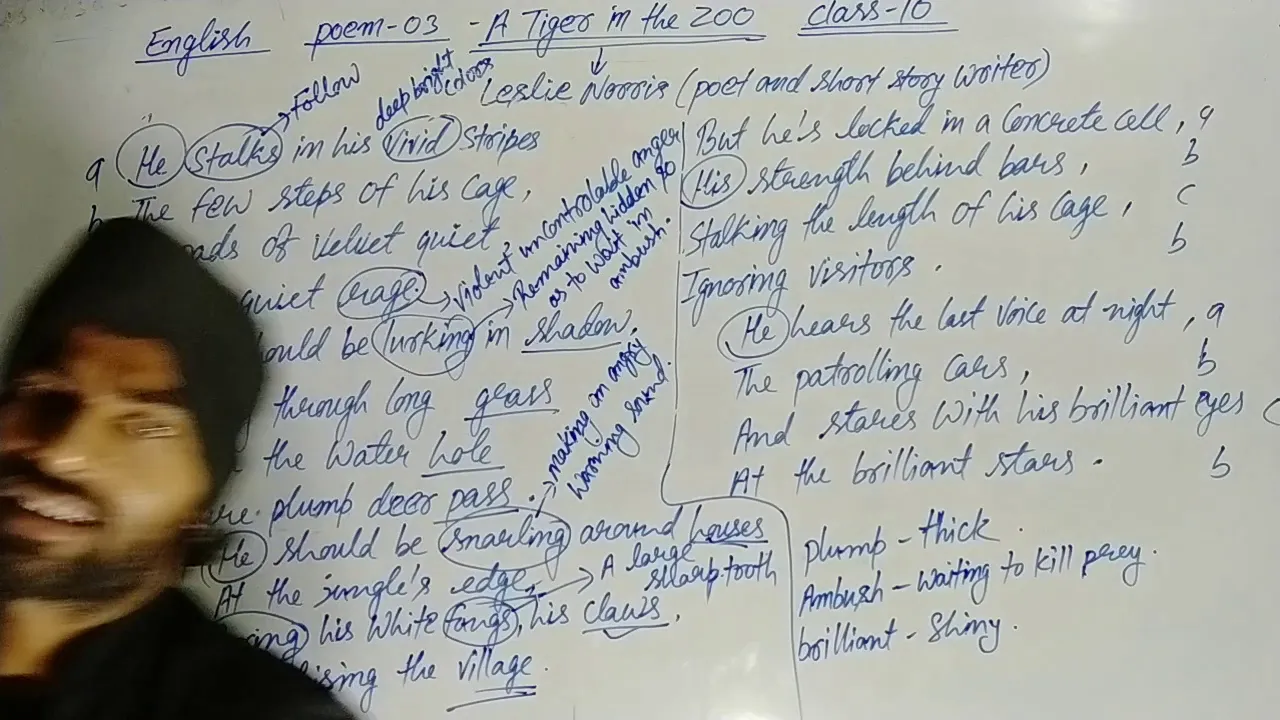 English poem-03 - A Tiger in the Zoo class-10
Leslie Norris (poet and short story writer)
Follow
deep bright colors
a He Stalks in his Vivid Stripes
The few steps of his cage,
pads of velvet quiet,
quiet rage.
Violent uncontrolable anger
Remaining hidden so
as to wait in
ambush.
be lurking in shadow,
through long grass
the water hole
plump deer pass.
making an angry
warning sound.
He should be snarling around houses
At the jungle's edge,
A large
sharp tooth
his white fangs, his claws,
the village.
But he's locked in a concrete cell, a
His strength behind bars, b
Stalking the length of his cage, c
Ignoring visitors. b
He hears the last voice at night, a
The patrolling cars, b
And stares with his brilliant eyes c
At the brilliant stars. b
plump - thick.
Ambush - waiting to kill prey.
brilliant - Shiny.